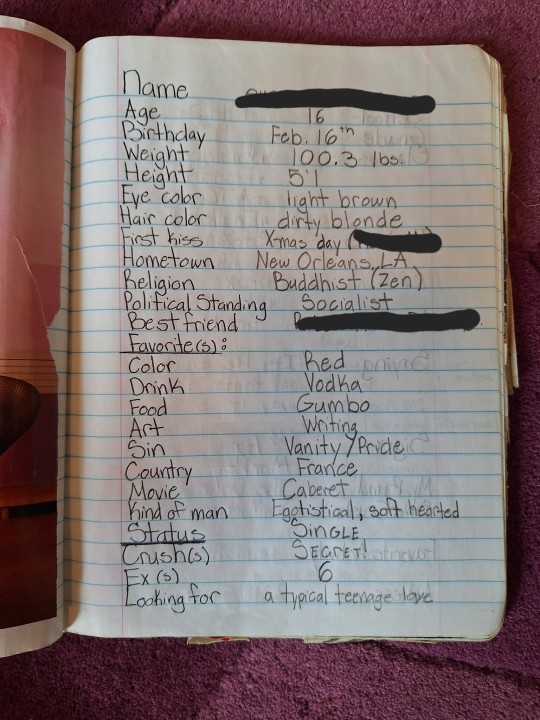 Name
Age 16
Birthday Feb. 16th
Weight 100.3 lbs.
Height 5'1
Eye color light brown
Hair color dirty blonde
First kiss X-mas day (
Hometown New Orleans, LA
Religion Buddhist (Zen)
Political Standing Socialist
Best friend
Favorite(s):
Color Red
Drink Vodka
Food Gumbo
Art Writing
Sin Vanity/Pride
Country France
Movie Caberet
Kind of man Egotistical, soft hearted
Status SINGLE
Crush(s) SECRET!
Ex(s) 6
Looking for a typical teenage love